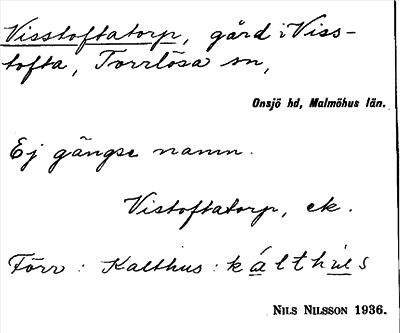 Visstoftatorp, gård i Viss-
tofta, Torrlösa sn,
Onsjö hd, Malmöhus län.
Ej gängse namn.
Vistoftatorp, ek.
Förr: Kalthus: kálthùs
NILS NILSSON 1936.